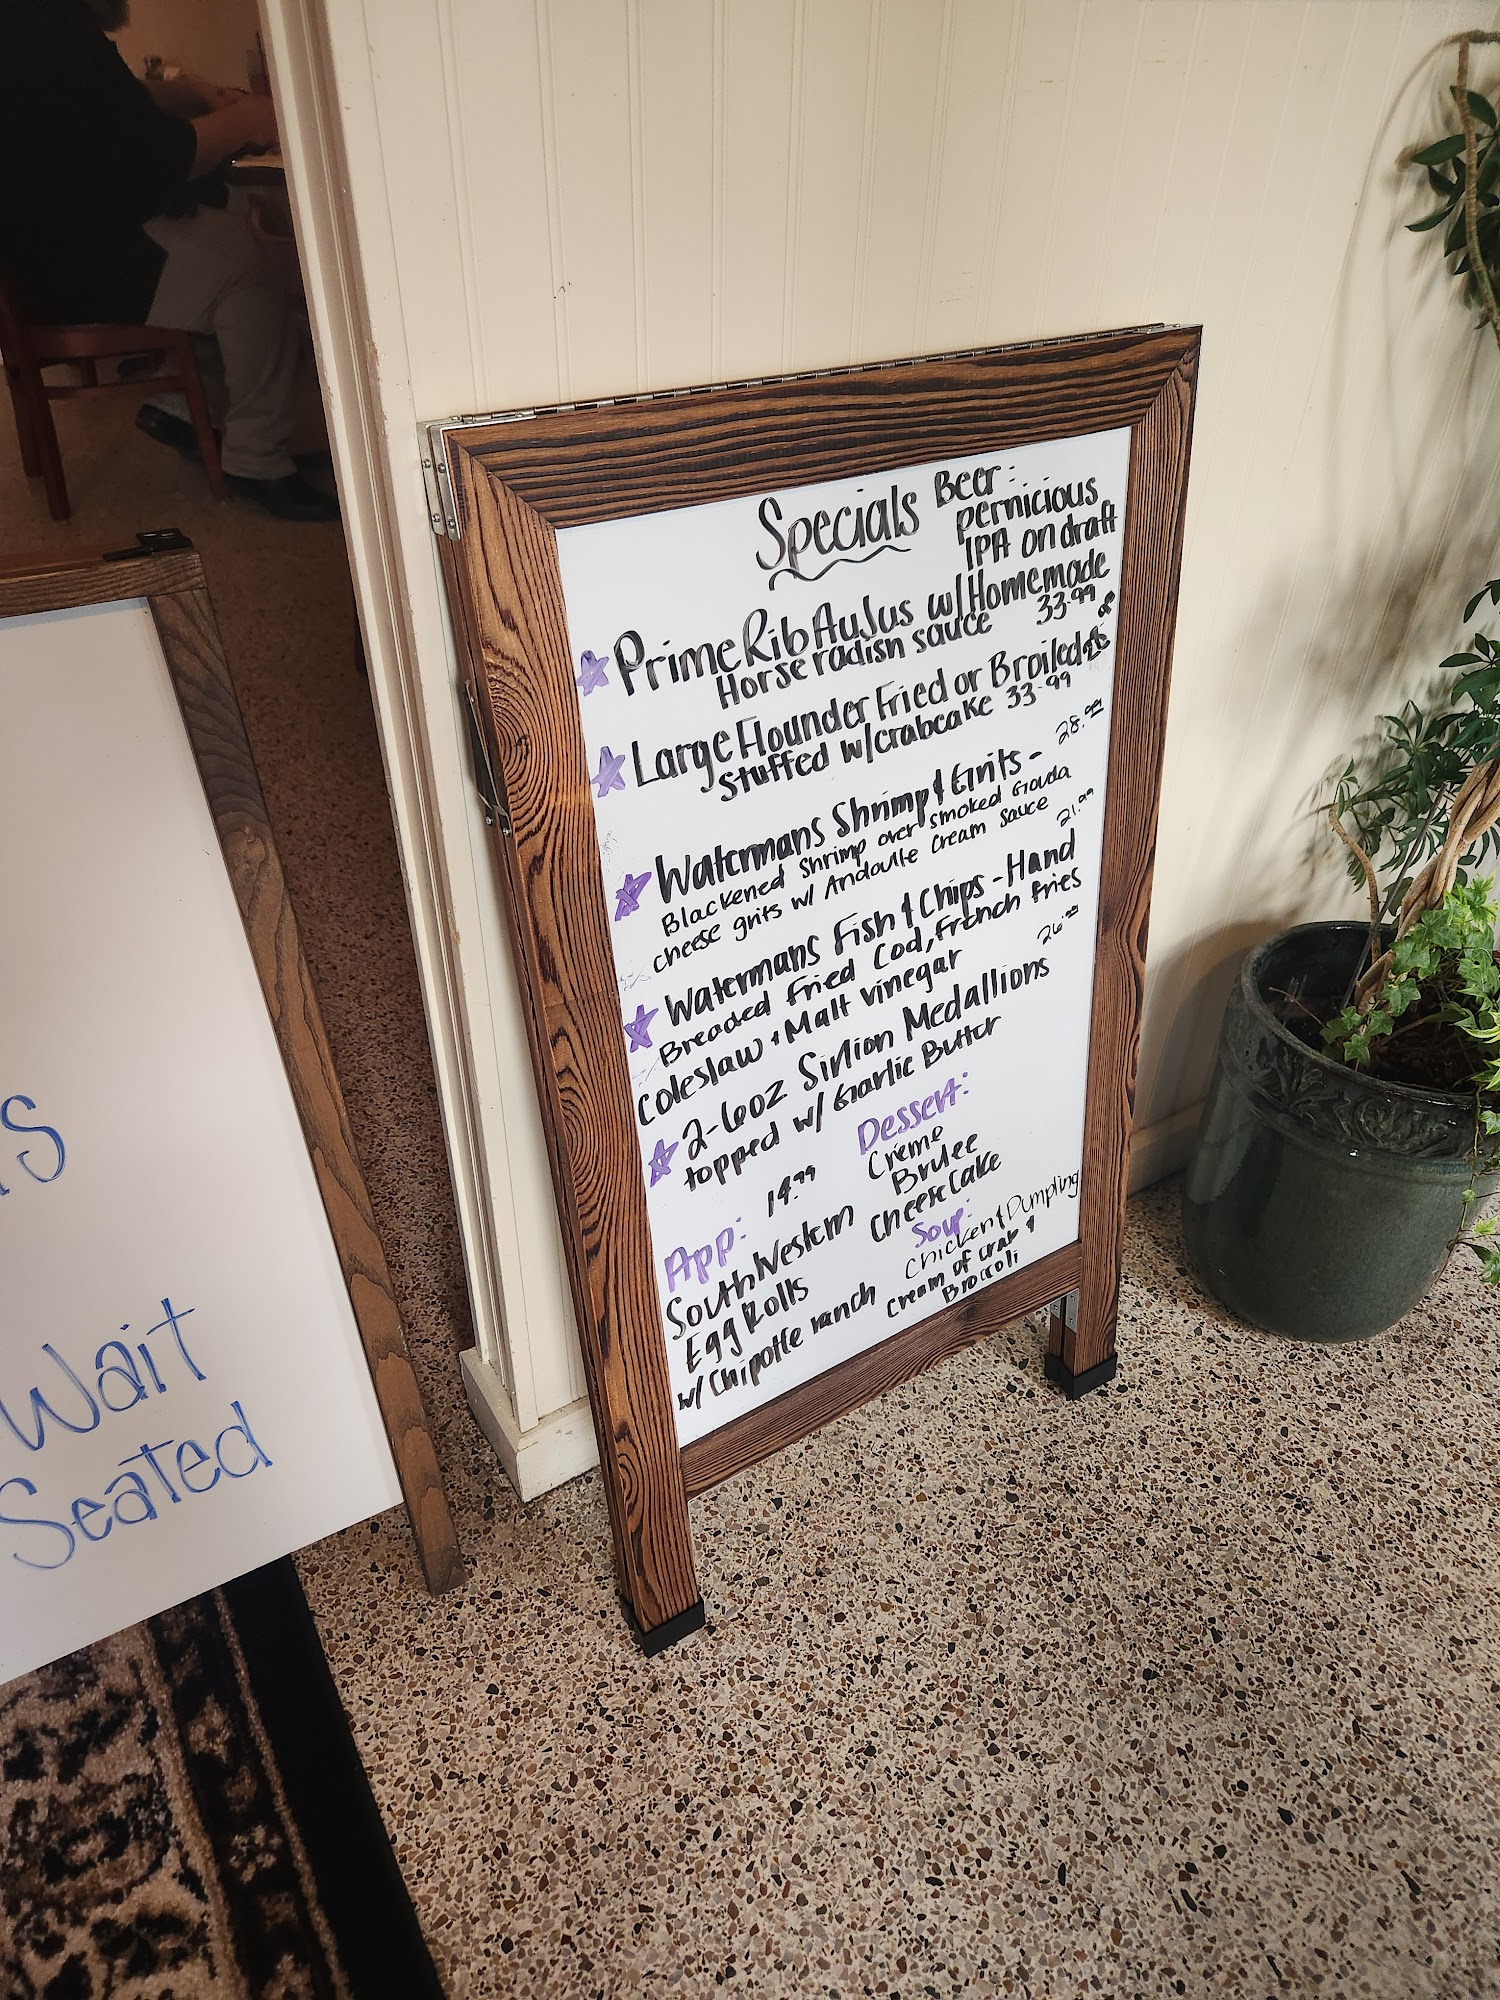 s
Wait
Seated
Specials
Beer:
pernicious
IPA on draft
Prime Rib AuJus w/Homemade
Horseradish sauce 33.99
Large Flounder Fried or Broiled 26
stuffed w/crabcake 33.99
Watermans Shrimp & Grits - 28.99
Blackened Shrimp over smoked Gouda
cheese grits w/ Andouille Cream Sauce
21.99
Watermans Fish & Chips - Hand
Breaded Fried Cod, French Fries
Coleslaw + Malt vinegar
2-6oz Sirlion Medallions 26
topped w/ Garlic Butter
App: 14.99
SouthWestern
Egg Rolls
w/ Chipotle ranch
Dessert:
Crème
Brulee
Cheesecake
Soup:
Chicken & Dumpling
Cream of crab &
Broccoli